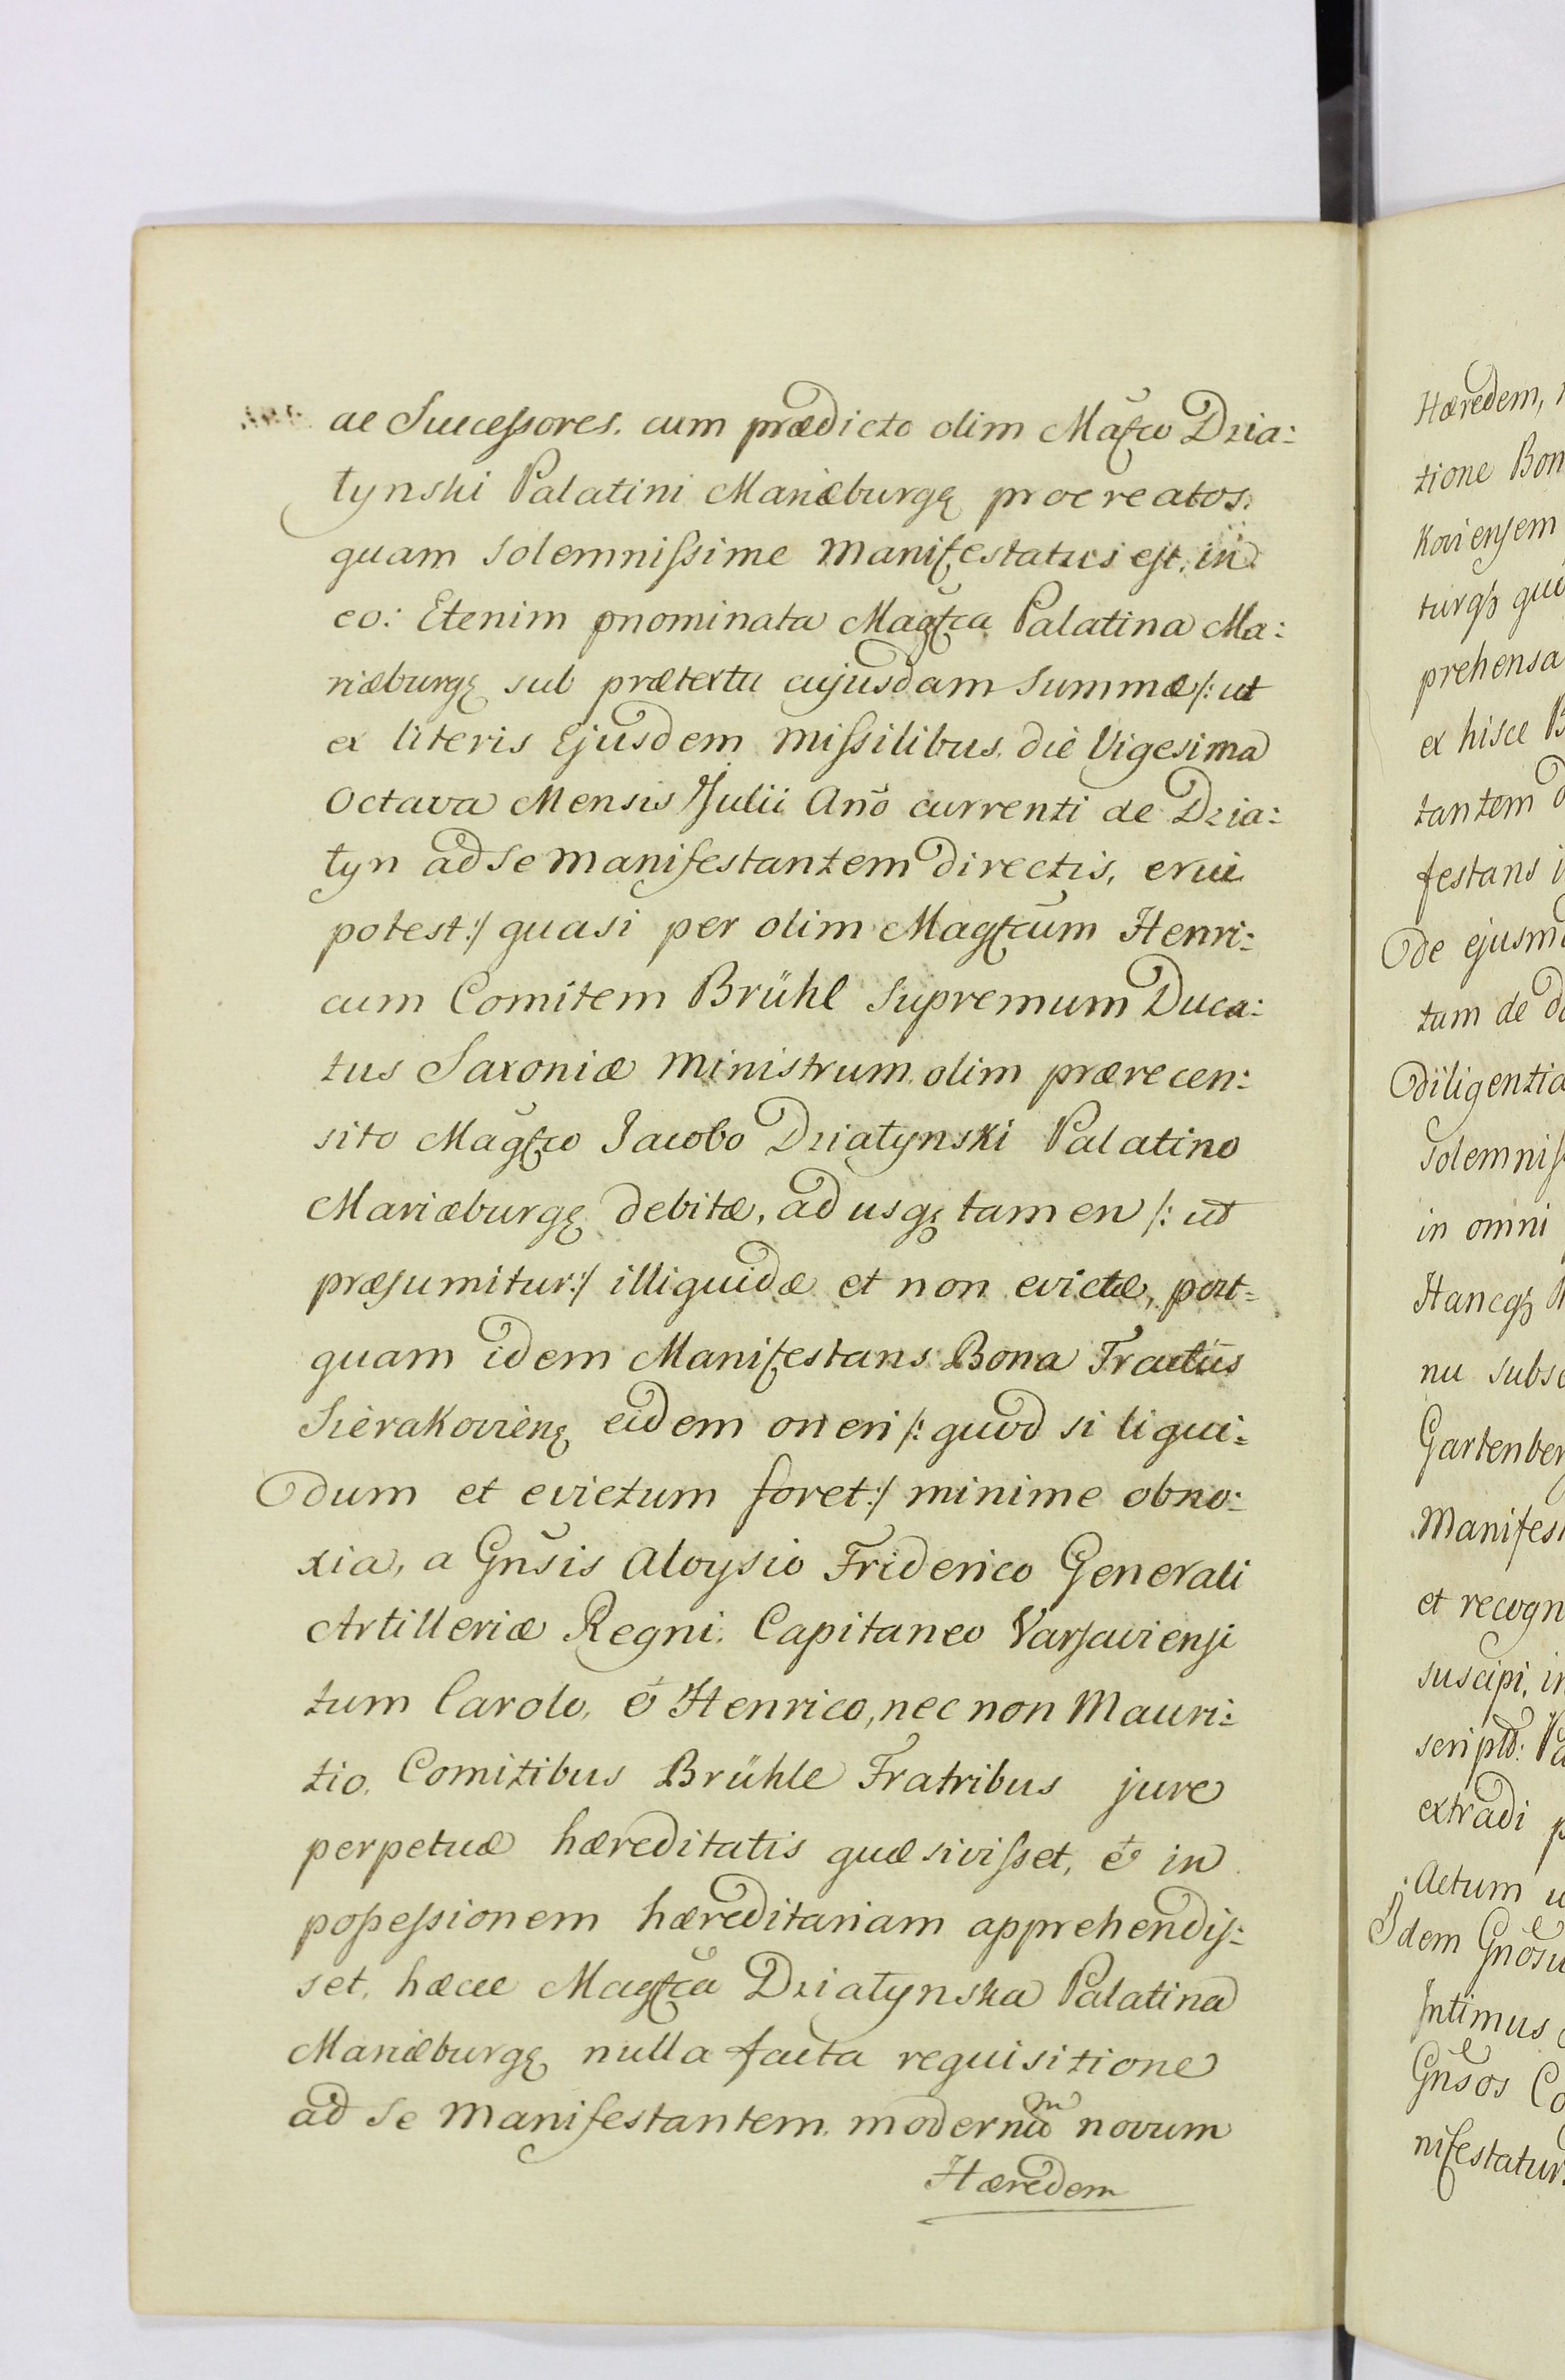 ac Successores. cum prædicto olim Magfco Dzia:
tynski Palatini Mariæburgę procreatos.
quam solemnissime manifestatus est, in
eo: Etenim pnominata Magfca Palatina Ma:
riæburgę sub prætextu cujusdam Summæ /: ut
ex literis Ejusdem missilibus, die Vigesima
Octava Mensis Julii Año currenti de Dzia:
tyn ad se manifestantem directis, erui
potest :/ quasi per olim Magfcum Henri:
cum Comitem Brühl Supremum Duca:
tus Saxoniæ Ministrum olim prærecen:
sito Magfco Jacobo Dziatynski Palatino
Mariæburgę debitæ, ad usqę tamen /: ut
præsumitur :/ illiquidæ et non evictæ, post=
quam idem Manifestans Bona Tractus
Sierakovieñę eidem oneri /: quod si liqui=
dum et evictum foret :/ minime obno:
xia, a Gñsis Aloysio Friderico Generali
Artilleriæ Regni, Capitaneo Varsaviensi
tum Carolo, & Henrico, nec non Mauri:
tio, Comitibus Brühle Fratribus jure
perpetuæ hæreditatis quæsivisset, & in
possessionem hæreditariam apprehendis:
set, hæcce Magfca Dziatynska Palatina
Mariæburgę nulla facta requisitione
ad se Manifestantem, modernũm novum
Hæredem
Hæredem,
tione Bon
koviensem
turqȝ
prehensa
ex hisce B
tantem
festans i
de ejusm
tum de
diligentia
Solemnis
in omni
Hancqȝ
nu subsc
Gartenber
Manifes
et recogn
suscipi, in
scriptõ: Pa
extradi p
Actum u
Idem Gñosu
Intimus
Gñsos Co
nifestatur